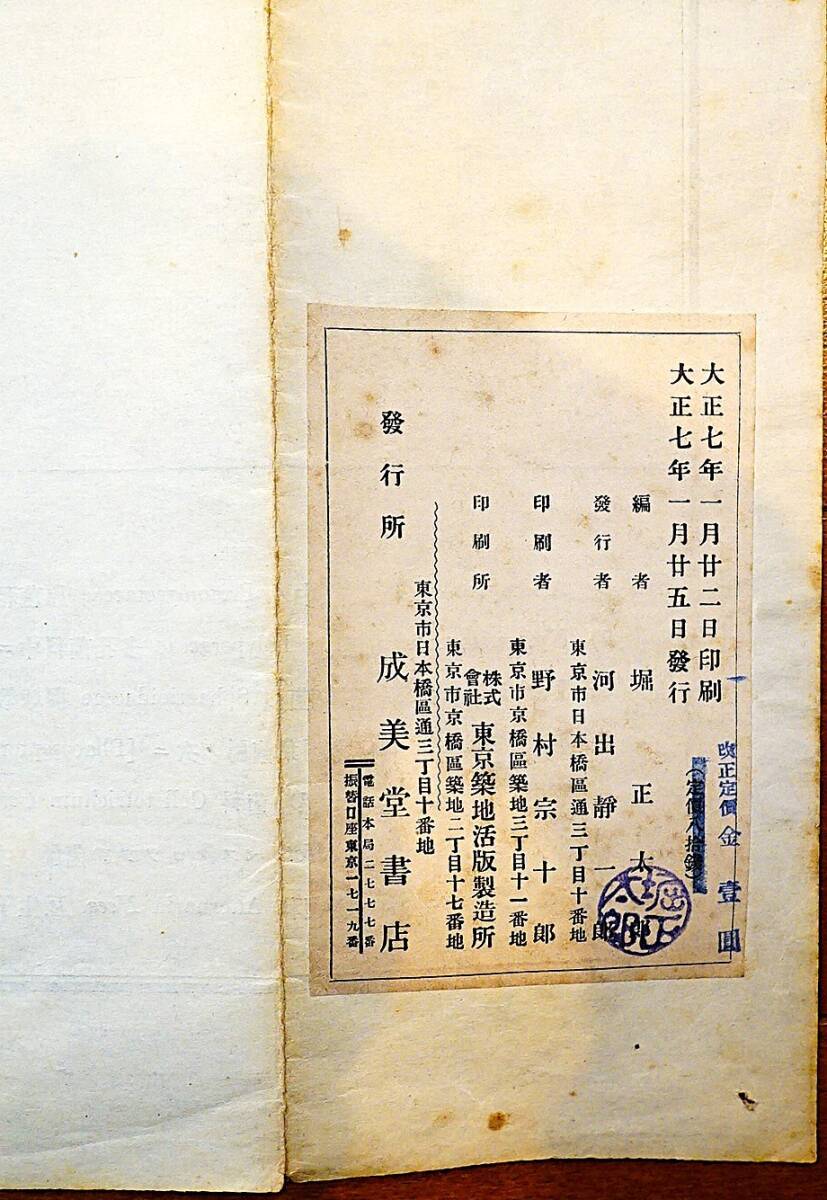 大正七年一月廿二日印刷
大正七年一月廿五日發行
改正定價金壹圓
(定價八拾錢)
編者 堀正太郎
堀正太郎
東京市日本橋區通三丁目十番地
發行者 河出靜一郎
東京市京橋區築地三丁目十一番地
印刷者 野村宗十郎
東京市京橋區築地二丁目十七番地
印刷所 株式會社 東京築地活版製造所
東京市日本橋區通三丁目十番地
發行所 成美堂書店
電話本局二七七七番
振替口座東京一七一九番